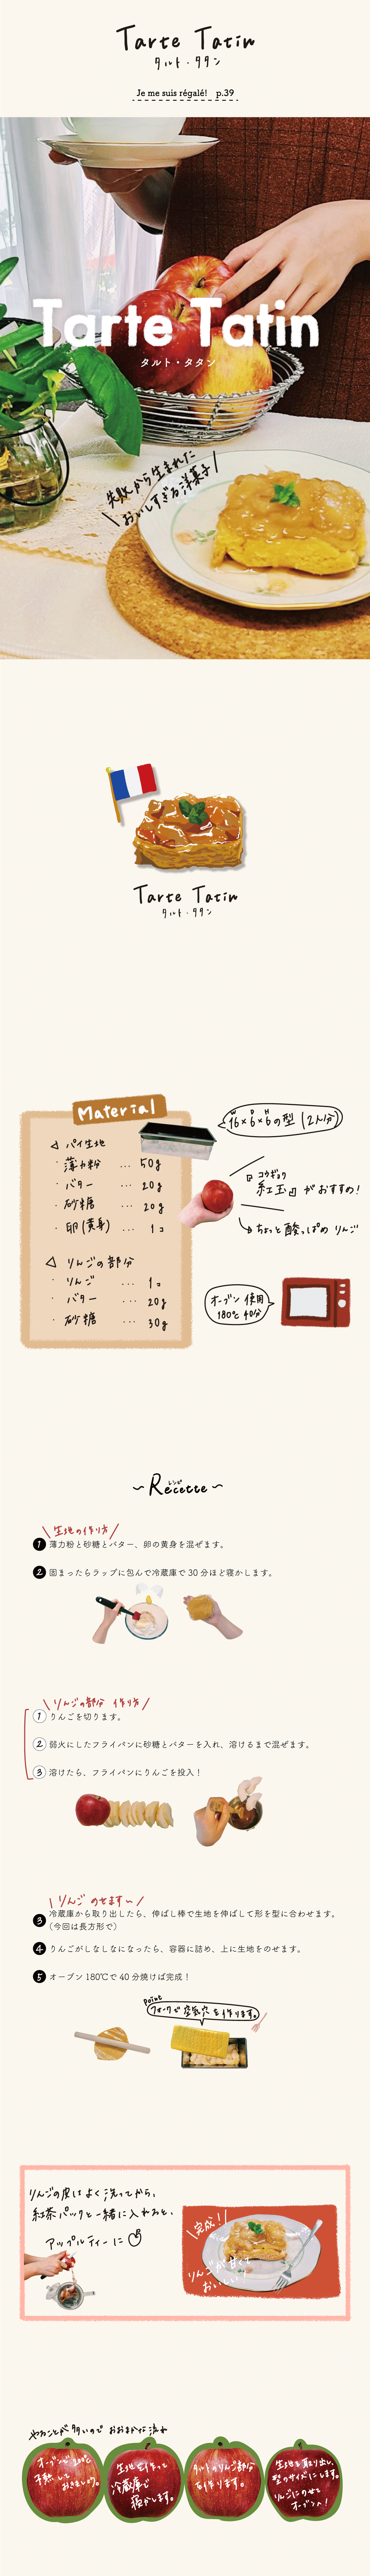 Tarte Tatin
タルト・タタン
Je me suis régalé! p.39
Tarte Tatin
タルト・タタン
失敗から生まれた
おいしすぎる洋菓子
Tarte Tatin
タルト・タタン
Material
◁ パイ生地
・薄力粉 … 50g
・バター … 20g
・砂糖 … 20g
・卵(黄身) … 1コ
◁ りんごの部分
・りんご … 1コ
・バター … 20g
・砂糖 … 30g
16×6×6の型(2人分)
コウギョク
『紅玉』がおすすめ!
ちょっと酸っぱめりんご
オーブン使用
180℃ 40分
〜Recette〜
レシピ
生地の作り方
1 薄力粉と砂糖とバター、卵の黄身を混ぜます。
2 固まったらラップに包んで冷蔵庫で30分ほど寝かします。
りんごの部分 作り方
1 りんごを切ります。
2 弱火にしたフライパンに砂糖とバターを入れ、溶けるまで混ぜます。
3 溶けたら、フライパンにりんごを投入!
りんご のせます
3 冷蔵庫から取り出したら、伸ばし棒で生地を伸ばして形を型に合わせます。
(今回は長方形で)
4 りんごがしなしなになったら、容器に詰め、上に生地をのせます。
5 オーブン180℃で40分焼けば完成!
Point
フォークで空気穴を作ります。
りんごの皮はよく洗ってから、
紅茶パックと一緒に入れると、
アップルティーに
完成!
りんごが甘くて
おいしい
やることが多いので おおまかな流れ
オーブンで
予熱して
おきましょう。
生地を作って
冷蔵庫で
寝かします。
タルトのりんご部分
を作ります。
生地を取り出し、
型のサイズにします。
りんごにのせて
オーブンへ!